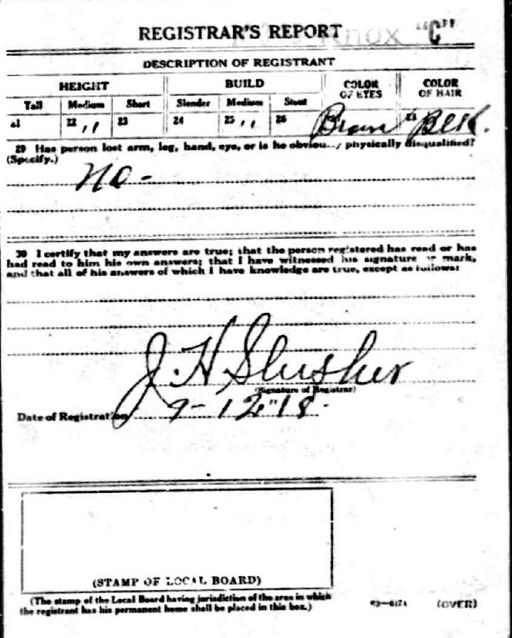 REGISTRAR'S REPORT
Knox "C"
DESCRIPTION OF REGISTRANT
HEIGHT BUILD COLOR OF EYES COLOR OF HAIR
Tall Medium Short Slender Medium Stout
21 22 " 23 24 25 " 26 Brown 28 Blk.
29 Has person lost arm, leg, hand, eye, or is he obviously physically disqualified?
(Specify.)
No -
30 I certify that my answers are true; that the person registered has read or has
had read to him his own answers; that I have witnessed his signature or mark,
and that all of his answers of which I have knowledge are true, except as follows:
J. H. Slusher
(Signature of Registrar)
Date of Registration 9-12"18.
(STAMP OF LOCAL BOARD)
(The stamp of the Local Board having jurisdiction of the area in which
the registrant has his permanent home shall be placed in this box.)
(OVER)